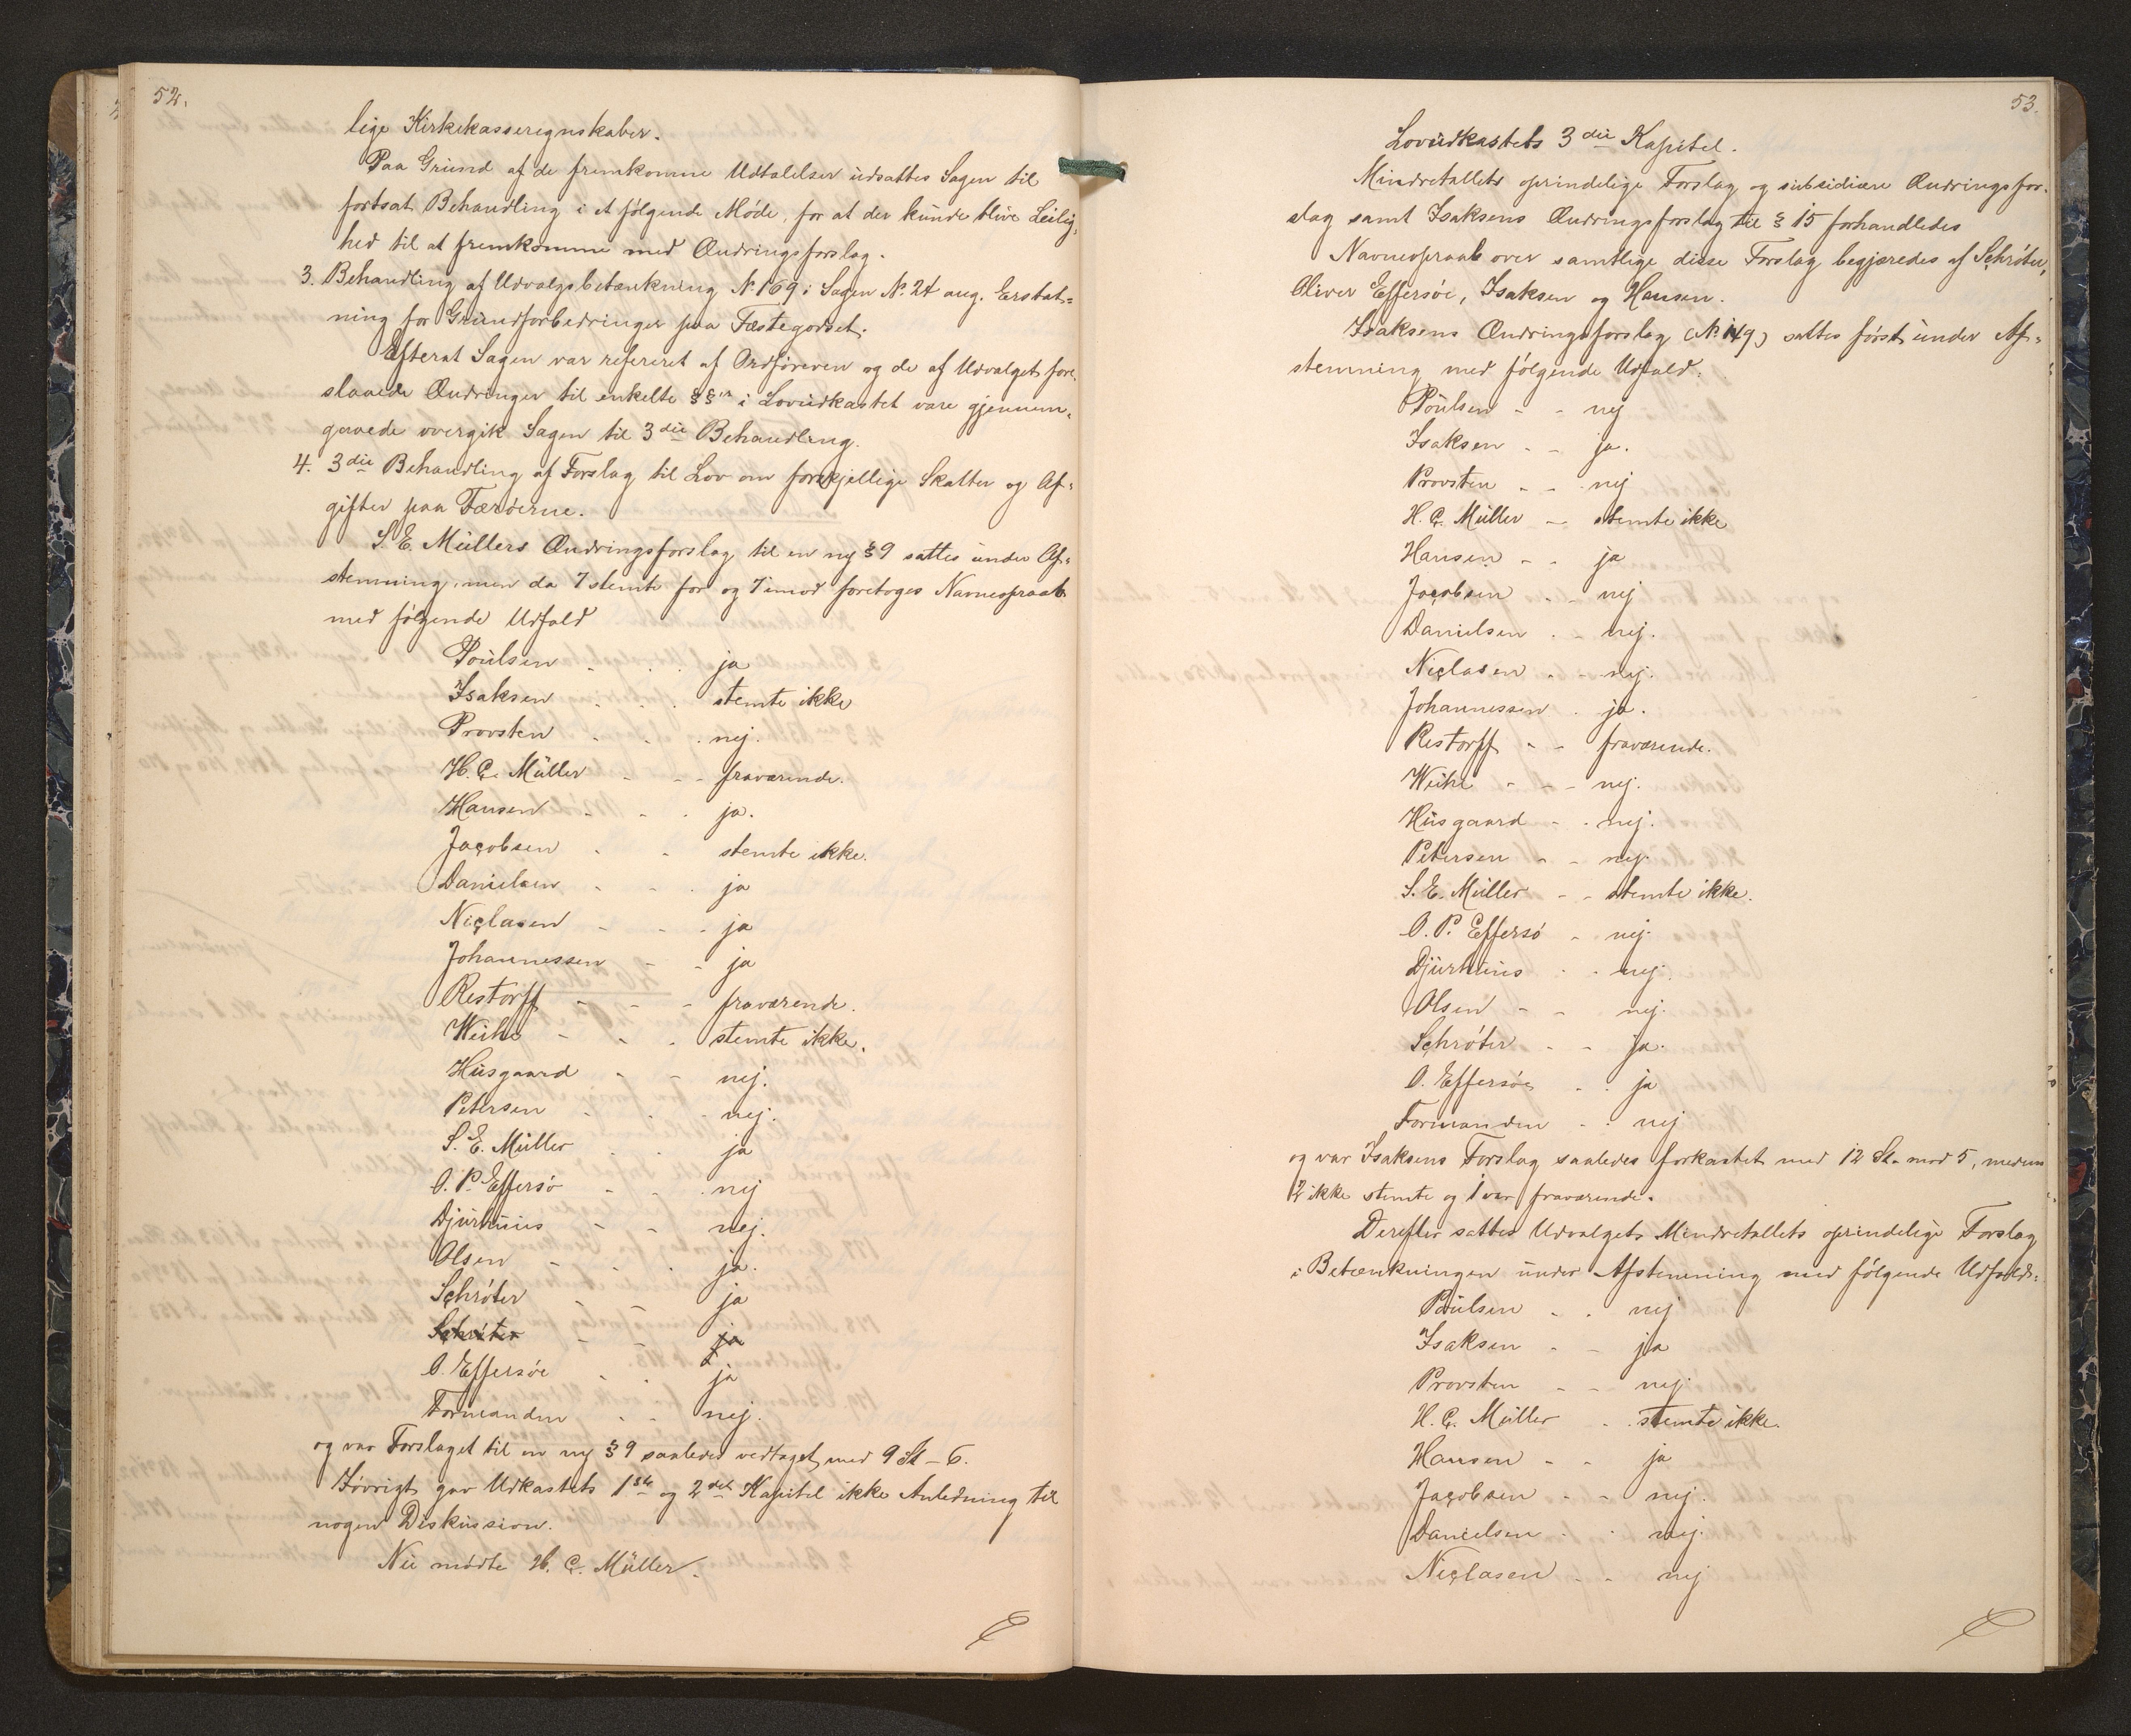 52.
lige Kirkekasseregnskaber.
Paa Grund af de fremkomne Udtalelser udsattes Sagen til
fortsat Behandling i et følgende Møde, for at der kunde blive Leilig-
hed til at fremkomme med Ændringsforslag.
3. Behandling af Udvalgsbetænkning N. 169 i Sagen N. 24 ang. Erstat=
ning for Grundforbedringer paa Fæstegodset.
Efterat Sagen var refereret af Ordføreren og de af Udvalget fore-
slaaede Ændringer til enkelte §§er i Lovudkastet vare gjennem-
gaaede overgik Sagen til 3die Behandling.
4. 3die Behandling af Forslag til Lov om forskjellige Skatter og Af=
gifter paa Færøerne.
S. E. Müllers Ændringsforslag til en ny § 9 sattes under Af=
stemning, men da 7 stemte for og 7 imod foretoges Navneopraab
med følgende Udfald
Poulsen - - - ja
Isaksen - - - stemte ikke
Provsten - - - nej.
H. C. Müller - - - fraværende.
Hansen - - - ja.
Jacobsen - - stemte ikke.
Danielsen - - - ja
Niclasen - - - ja
Johannessen - - ja
Restorff - - - fraværende.
Weihe - - - stemte ikke.
Husgaard - - nej.
Petersen - - - nej.
S. E. Müller - - ja
O. P. Effersø - - - nej
Djurhuus - - nej.
Olsen - - - ja.
Schrøter - - ja
Schrøter - - ja
O. Effersøe - - ja
Formanden - - nej.
og var Forslaget til en ny § 9 saaledes vedtaget med 9 St - 6.
Iøvrigt gav Udkastets 1ste og 2det Kapitel ikke Anledning til
nogen Diskussion.
Nu mødte H. C. Müller.
53.
Lovudkastets 3die Kapitel.
Mindretallets oprindelige Forslag og subsidiære Ændringsfor-
slag samt Isaksens Ændringsforslag til § 15 forhandledes
Navneopraab over samtlige disse Forslag begjæredes af Schrøter,
Oliver Effersøe, Isaksen og Hansen.
Isaksens Ændringsforslag (N. 149) sattes først under Af=
stemning med følgende Udfald:
Poulsen - - nej
Isaksen - - ja.
Provsten - - nej
H. C. Müller - stemte ikke
Hansen - - ja
Jacobsen - - nej
Danielsen - - nej.
Niclasen - - nej.
Johannessen - ja.
Restorff - - fraværende.
Weihe - - - nej.
Husgaard - - nej.
Petersen - - nej.
S. E. Müller - - stemte ikke.
O. P. Effersø - nej.
Djurhuus - - nej.
Olsen - - nej.
Schrøter - - ja.
O. Effersøe - - ja
Formanden - - nej
og var Isaksens Forslag saaledes forkastet med 12 St. mod 5, medens
2 ikke stemte og 1 var fraværende.
Derefter sattes Udvalgets Mindretallets oprindelige Forslag
i Betænkningen under Afstemning med følgende Udfald:
Poulsen - - nej
Isaksen - - ja
Provsten - - nej.
H. C. Müller - stemte ikke.
Hansen - - ja
Jacobsen - - nej.
Danielsen - - nej.
Niclasen - - nej